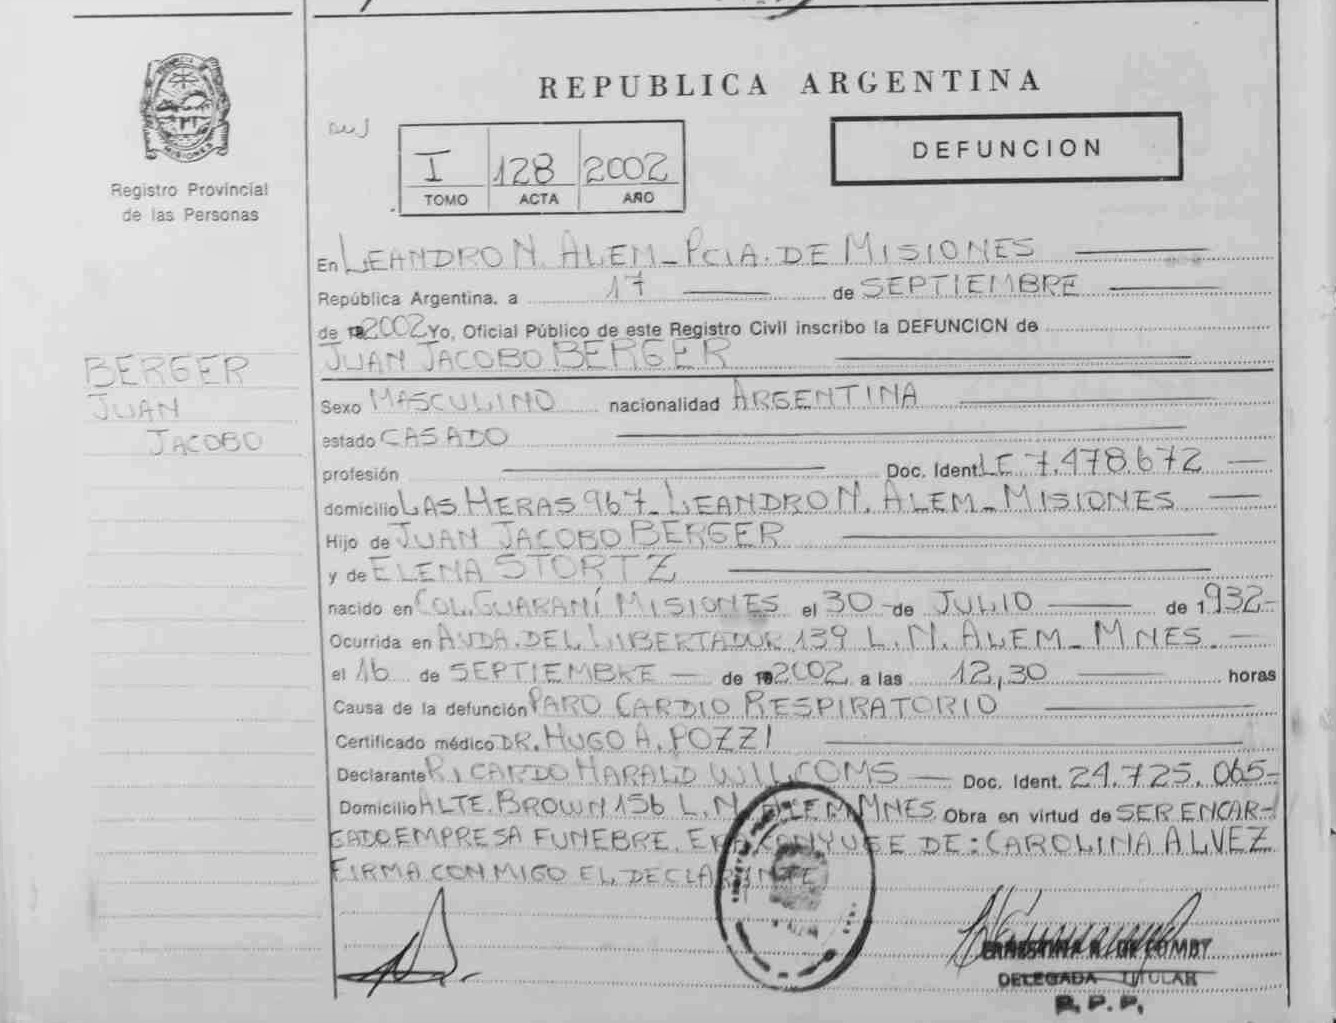 REPUBLICA ARGENTINA
MISIONES
Registro Provincial
de las Personas
I 128 2002
TOMO ACTA AÑO
DEFUNCION
En LEANDRO N. ALEM_PCIA. DE MISIONES
República Argentina, a 17 de SEPTIEMBRE
de 2002 Yo, Oficial Público de este Registro Civil inscribo la DEFUNCION de
JUAN JACOBO BERGER
BERGER
JUAN
JACOBO
Sexo MASCULINO nacionalidad ARGENTINA
estado CASADO
profesión Doc. Ident. LE 7.478.672
domicilio LAS HERAS 967_LEANDRO N. ALEM_MISIONES
Hijo de JUAN JACOBO BERGER
y de ELENA STORTZ
nacido en COL. GUARANÍ MISIONES el 30 de JULIO de 1932-
Ocurrida en AVDA. DEL LIBERTADOR 139 L.N. ALEM_MNES.
el 16 de SEPTIEMBRE de 2002 a las 12,30 horas
Causa de la defunción PARO CARDIO RESPIRATORIO
Certificado médico DR. HUGO A. POZZI
Declarante RICARDO HARALD WILLCOMS Doc. Ident. 24.725.065-
Domicilio ALTE. BROWN 156 L.N. ALEM MNES. Obra en virtud de SER ENCAR-
GADO EMPRESA FUNEBRE. ERA CONYUGE DE: CAROLINA ALVEZ
FIRMA CONMIGO EL DECLARANTE
ERNESTINA R. DE COMBY
DELEGADA TITULAR
R.P.P.